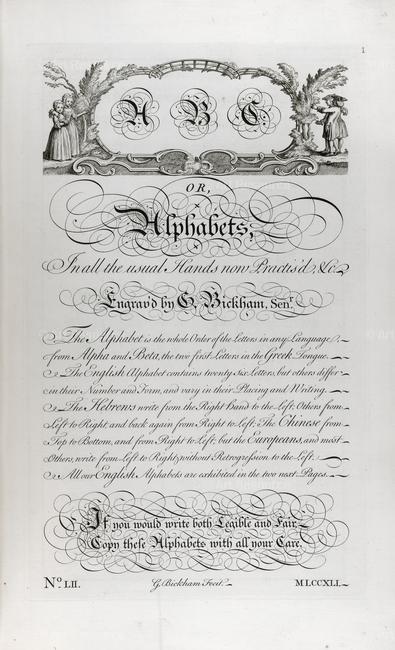 1
A B C
OR,
Alphabets,
In all the usual Hands now Practis'd, &c.
Engrav'd by G. Bickham, Senr.
The Alphabet is the whole Order of the Letters in any Language,
from Alpha and Beta, the two first Letters in the Greek Tongue.
The English Alphabet contains twenty six Letters, but others differ
in their Number and Form, and vary in their Placing and Writing.
The Hebrews write from the Right Hand to the Left; Others from
Left to Right, and back again from Right to Left; The Chinese from
Top to Bottom, and from Right to Left; but the Europeans, and most
Others, write from Left to Right, without Retrogression to the Left.
All our English Alphabets are exhibited in the two next Pages.
If you would write both Legible and Fair,
Copy these Alphabets with all your Care.
No. LII. G. Bickham Fecit. MLCCXLI.